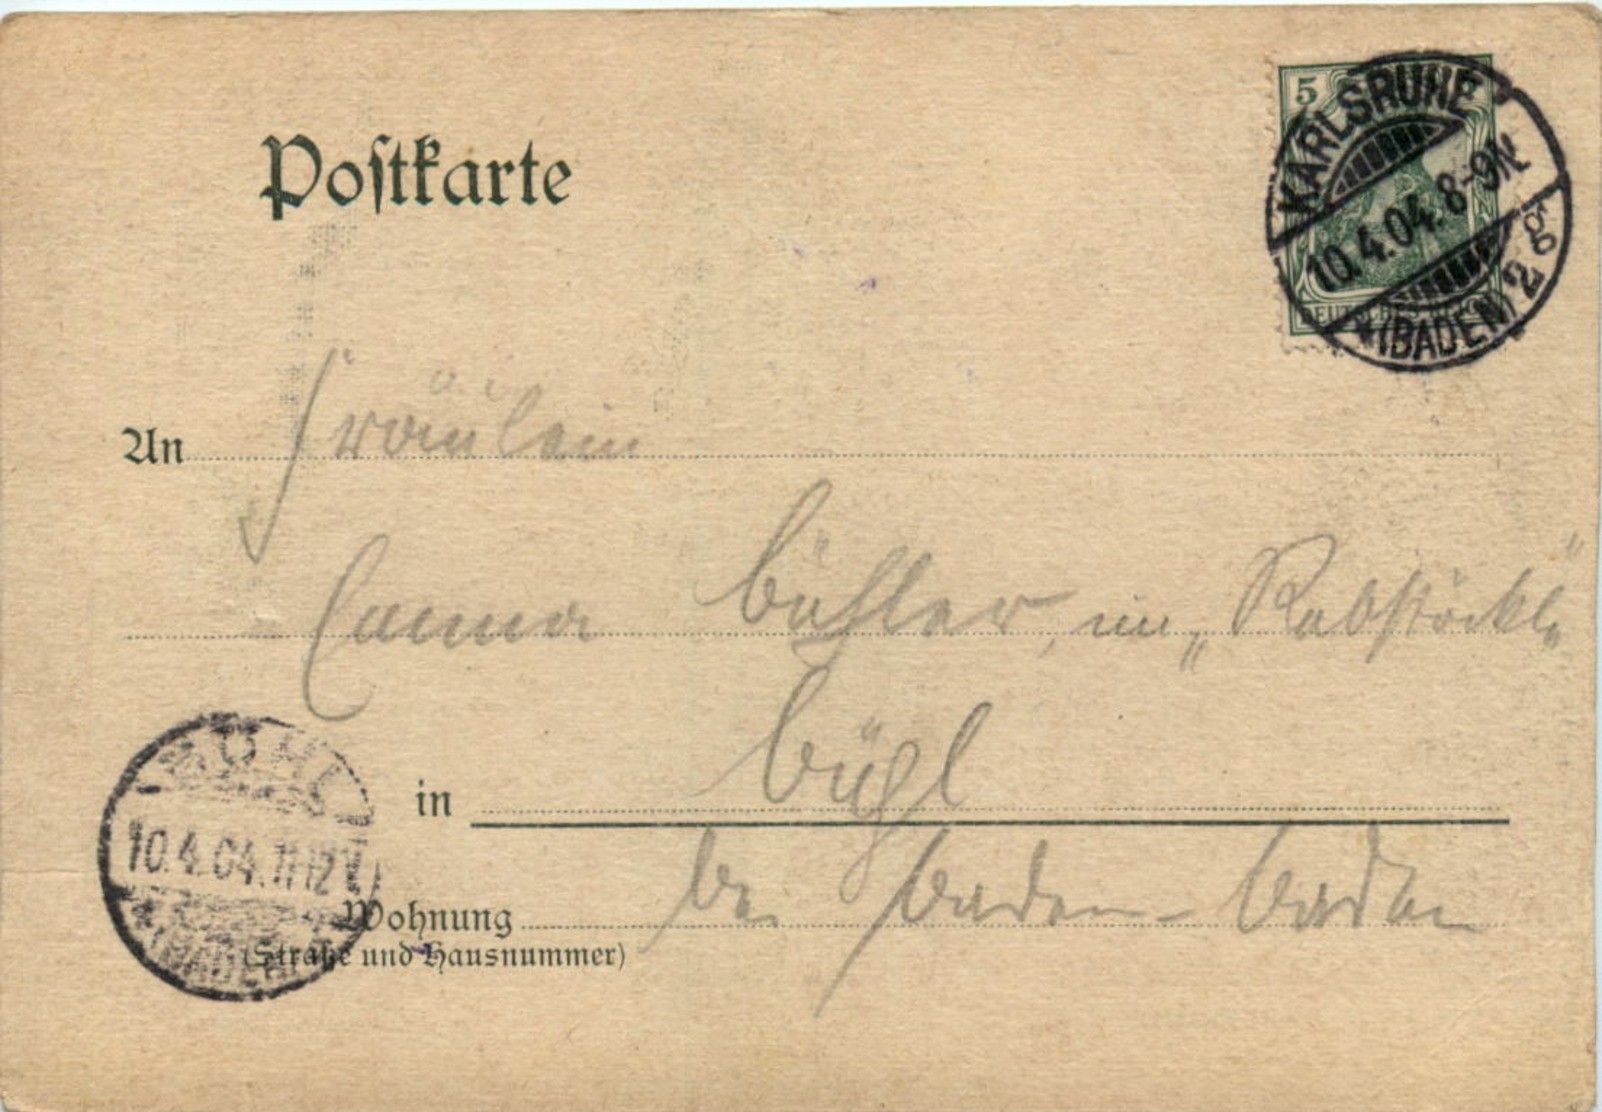 Postkarte
5
DEUTSCHES REICH
KARLSRUHE
10.4.04. 8-9N.
(BADEN) 2g
An Fräulein
Bühler, im „Rabstöckl“
in Bühl
bei Baden-Baden
BÜHL
10.4.04.11-12V
(BADEN)
Wohnung
(Straße und Hausnummer)